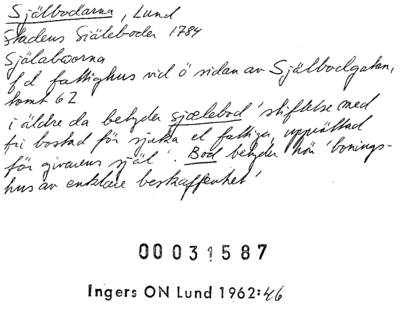 Själbodarna, Lund
Stadens Siäleboder 1784
Själaboorna
f d fattighus vid ö sidan av Själbodgatan,
tomt 62
i äldre da betyder sjælebod 'stiftelse med
fri bostad för sjuka el fattiga, upprättad
för givarens själ'. Bod betyder här 'bonings-
hus av enklare beskaffenhet'
00031587
Ingers ON Lund 1962:46